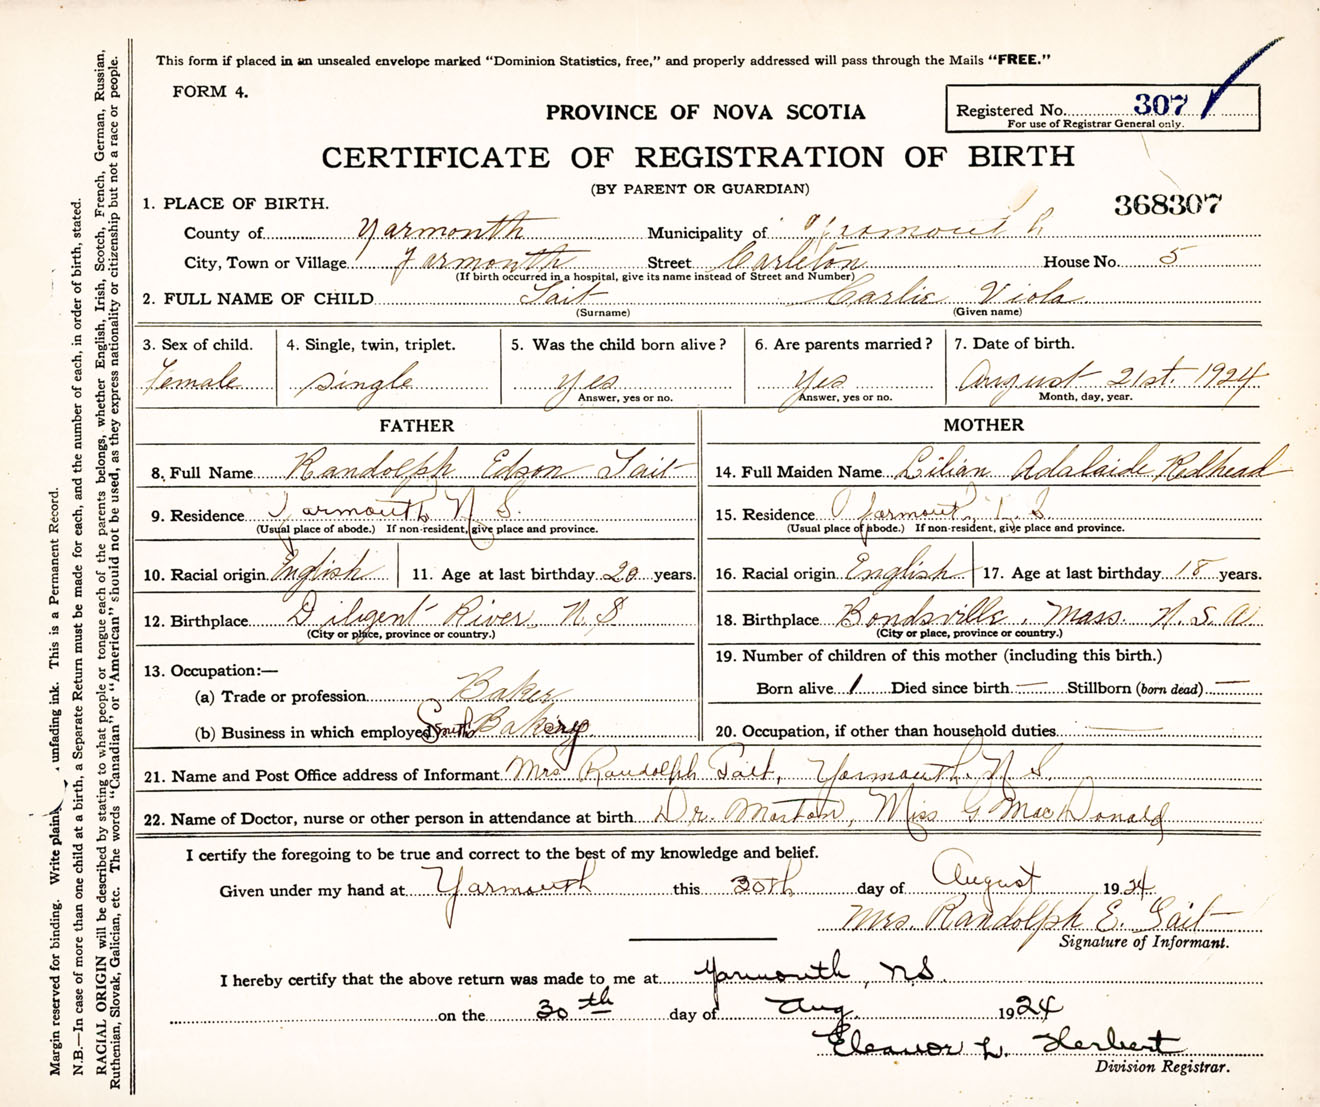 This form if placed in an unsealed envelope marked "Dominion Statistics, free," and properly addressed will pass through the Mails "FREE."
FORM 4.
PROVINCE OF NOVA SCOTIA
Registered No. 307
For use of Registrar General only.
CERTIFICATE OF REGISTRATION OF BIRTH
(BY PARENT OR GUARDIAN)
368307
1. PLACE OF BIRTH.
County of Yarmouth Municipality of Yarmouth
City, Town or Village Yarmouth Street Carleton House No. 5
(If birth occurred in a hospital, give its name instead of Street and Number)
2. FULL NAME OF CHILD Tait Carlie Viola
(Surname) (Given name)
3. Sex of child. 4. Single, twin, triplet. 5. Was the child born alive? 6. Are parents married? 7. Date of birth.
Female single yes Yes August 21st. 1924
Answer, yes or no. Answer, yes or no. Month, day, year.
FATHER MOTHER
8. Full Name Randolph Edson Tait 14. Full Maiden Name Lilian Adalaide Redhead
9. Residence Yarmouth N.S. 15. Residence Yarmouth, N.S.
(Usual place of abode.) If non-resident, give place and province. (Usual place of abode.) If non-resident, give place and province.
10. Racial origin English 11. Age at last birthday 20 years. 16. Racial origin English 17. Age at last birthday 18 years.
12. Birthplace Diligent River, N.S 18. Birthplace Bondsville, Mass. U.S.A
(City or place, province or country.) (City or place, province or country.)
19. Number of children of this mother (including this birth.)
13. Occupation:—
Born alive 1 Died since birth — Stillborn (born dead) —
(a) Trade or profession Baker
(b) Business in which employed Smith Bakery 20. Occupation, if other than household duties —
21. Name and Post Office address of Informant Mrs Randolph Tait, Yarmouth, N.S.
22. Name of Doctor, nurse or other person in attendance at birth Dr. Morton, Miss G MacDonald
I certify the foregoing to be true and correct to the best of my knowledge and belief.
Given under my hand at Yarmouth this 30th day of August 1924
Mrs. Randolph E. Tait
Signature of Informant.
I hereby certify that the above return was made to me at Yarmouth, N.S.
on the 30th day of Aug. 1924
Eleanor L. Herbert
Division Registrar.
Margin reserved for binding. Write unfading ink. This is a Permanent Record.
N.B.—In case of more than one child at a birth, a Separate Return must be made for each, and the number of each, in order of birth, stated.
RACIAL ORIGIN will be described by stating to what people or tongue each of the parents belongs, whether English, Irish, Scotch, French, German, Russian,
Ruthenian, Slovak, Galician, etc. The words "Canadian" or "American" should not be used, as they express nationality or citizenship but not a race or people.